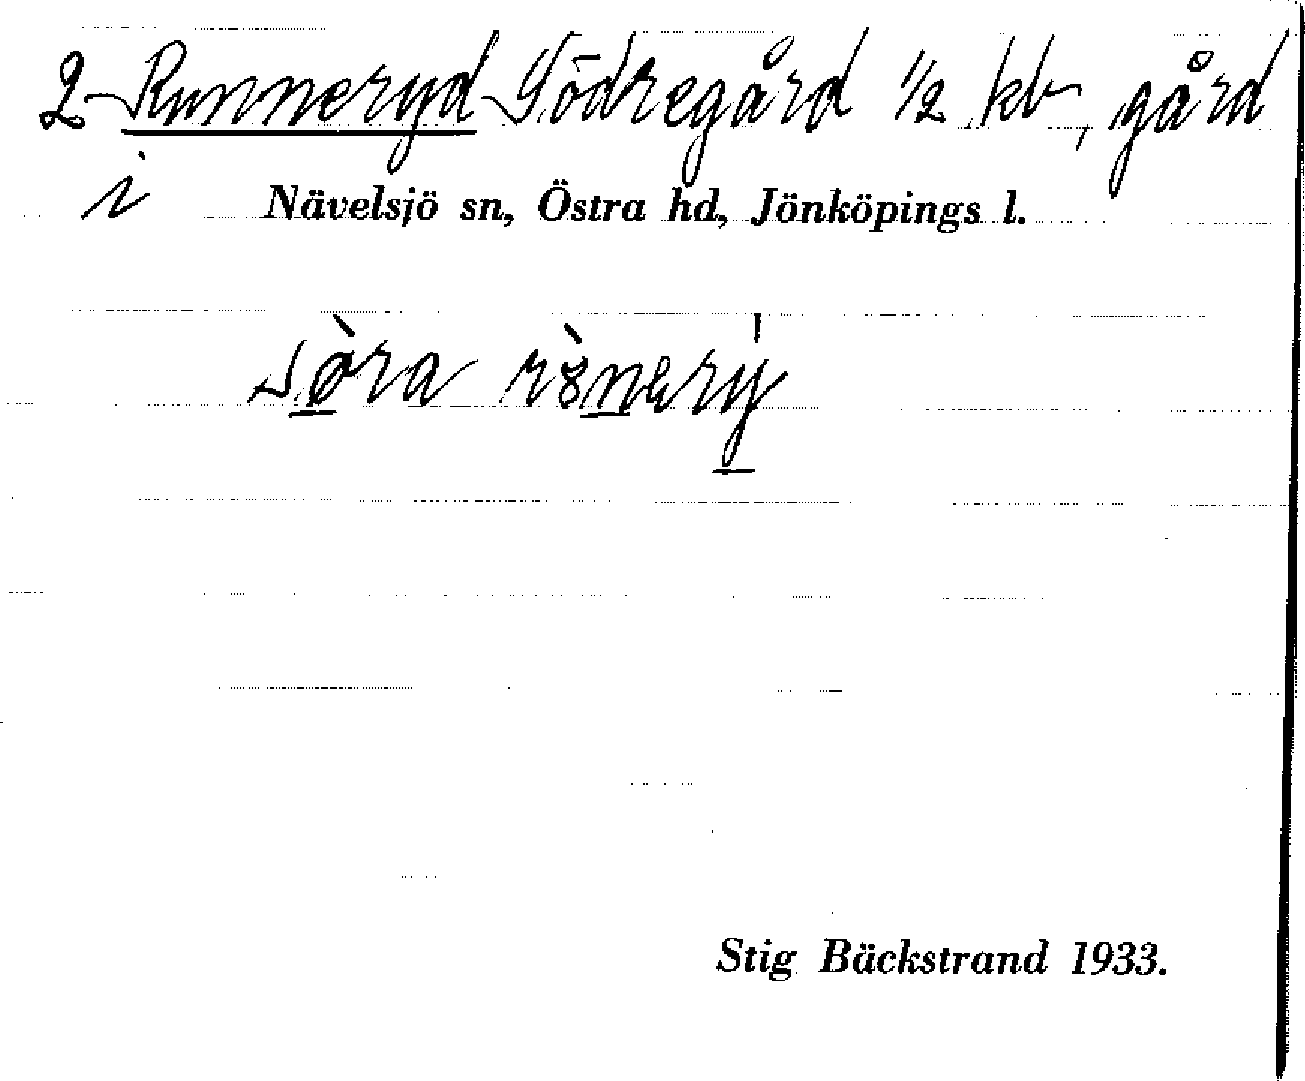 2 Runneryd Södregård 1/2 kb, gård
i Nävelsjö sn, Östra hd, Jönköpings l.
sø̀ra rònery
Stig Bäckstrand 1933.